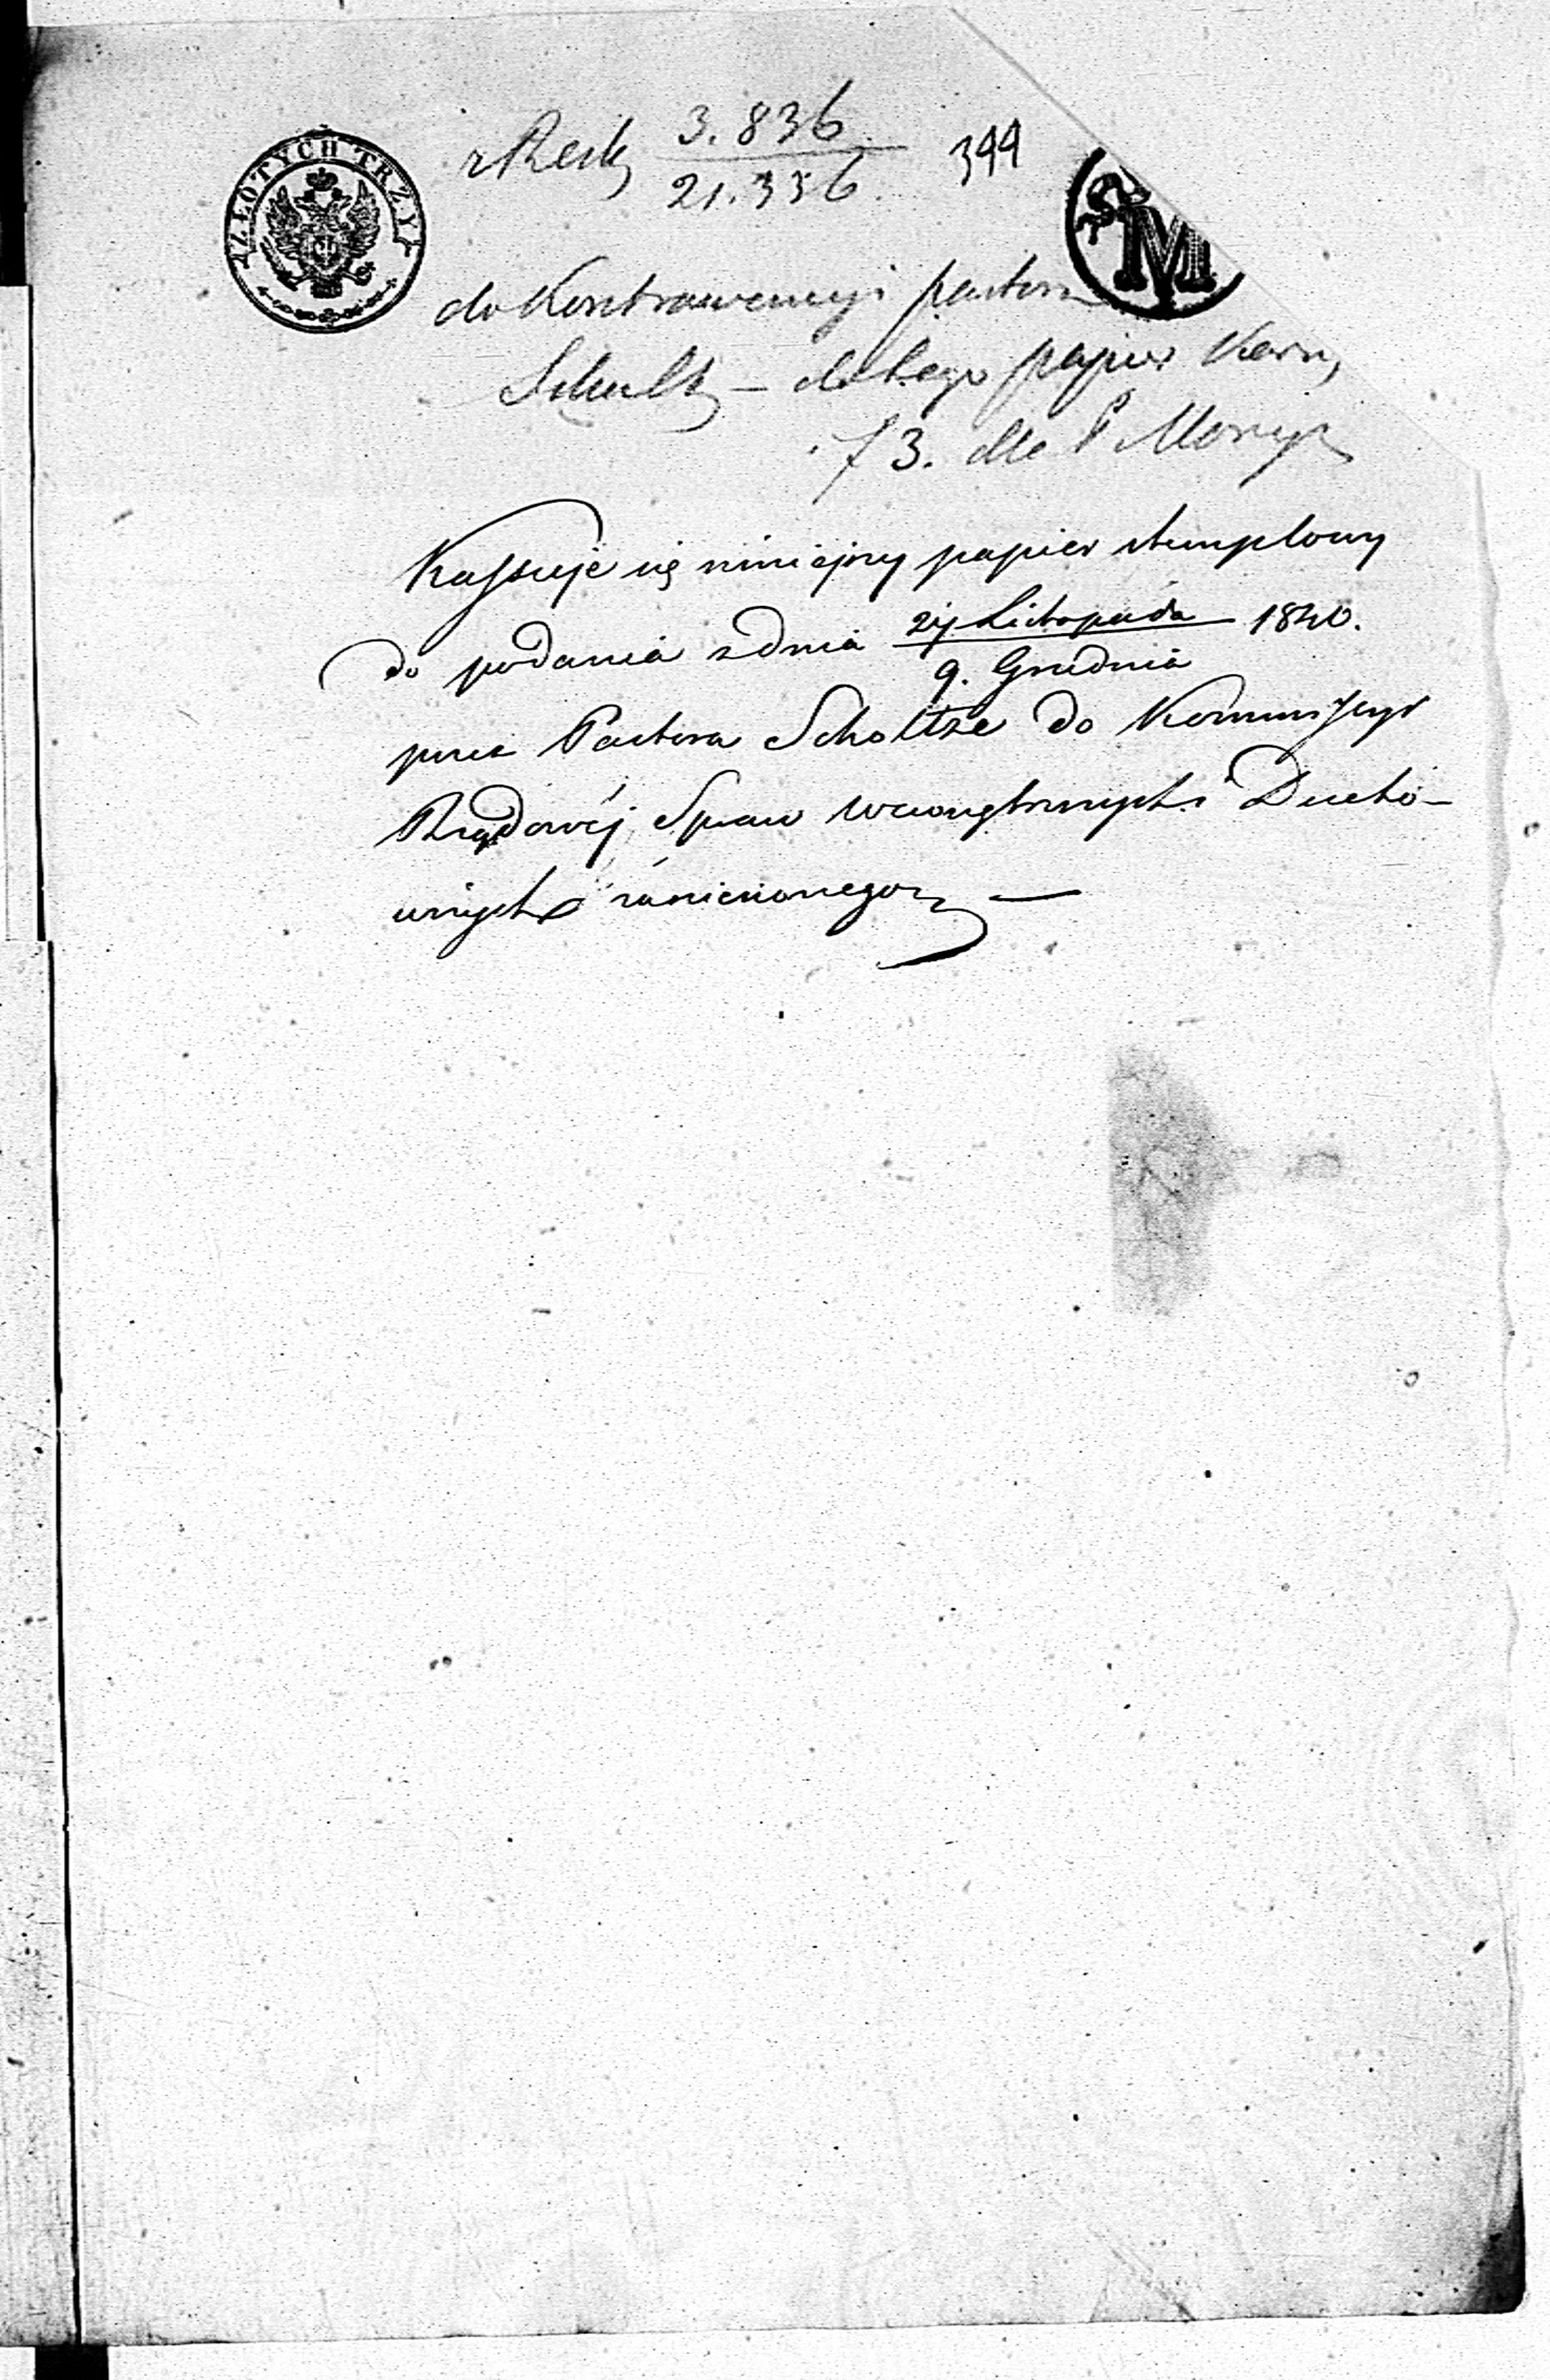 ZŁOTYCH TRZY
3.836
21.336.
344
M
do Kontrawencyi pastora
Schultz — do tego papier
f 3. dla P Moryc
Kassuje się niniejszy papier stemplowy
do podania z dnia 27 Listopada 1840.
9. Grudnia
przez Pastora Scholtze do Kommissyi
Rządowéj Spraw Wewnętrznych i Ducho-
wnych zaniesionego —